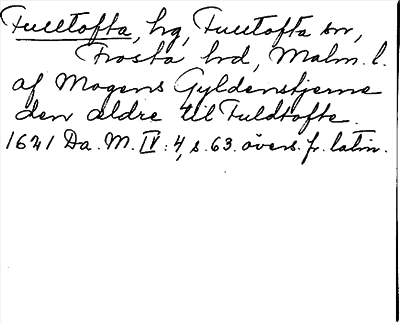 Fulltofta, hg, Fulltofta sn,
Frosta hd, Malm. l.
af Mogens Gyldenstjerne
den ældre til Fuldtofte.
1621 Da. M. IV: 4, s. 63. övers. fr. latin.